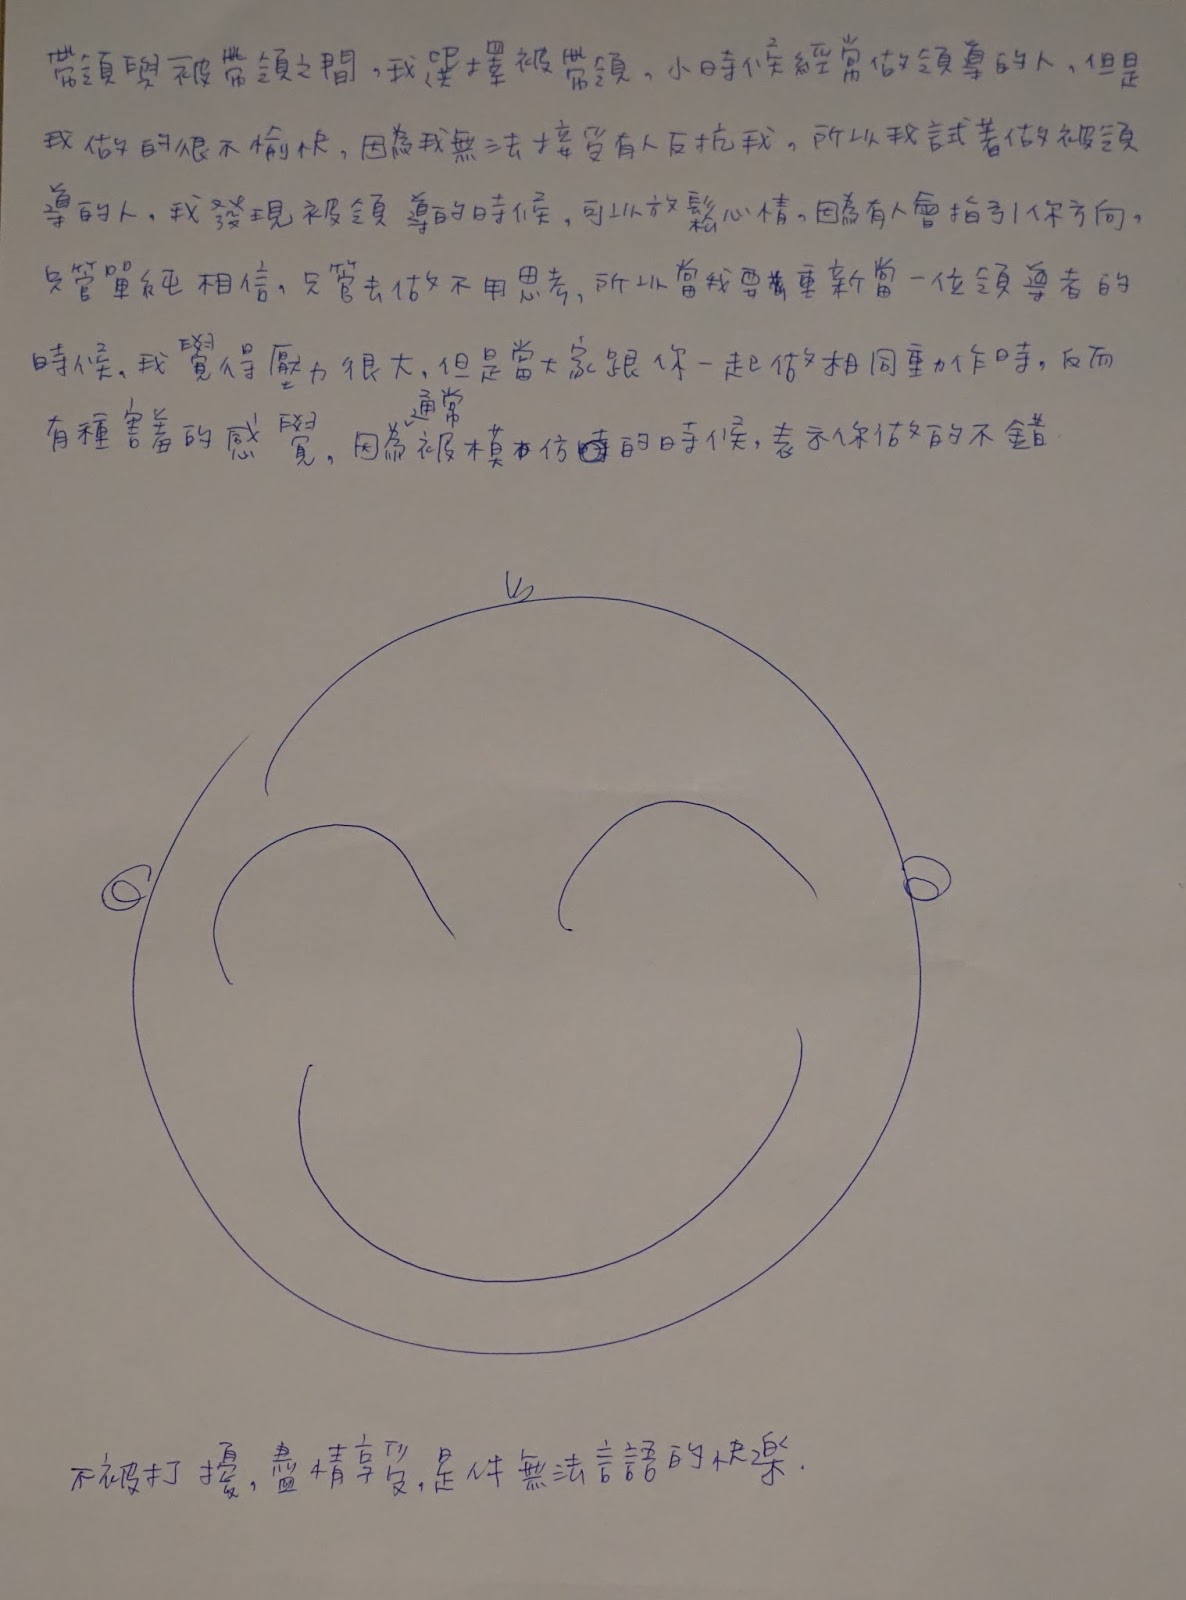 帶領與被帶領之間，我選擇被帶領，小時候經常做領導的人，但是
我做的很不愉快，因為我無法接受有人反抗我，所以我試著做被領
導的人，我發現被領導的時候，可以放鬆心情，因為有人會指引你方向，
只管單純相信，只管去做不用思考，所以當我要重新當一位領導者的
時候，我覺得壓力很大，但是當大家跟你一起做相同動作時，反而
有種害羞的感覺，因為通常被模仿的時候，表示你做的不錯
不被打擾，盡情享受，是件無法言語的快樂.